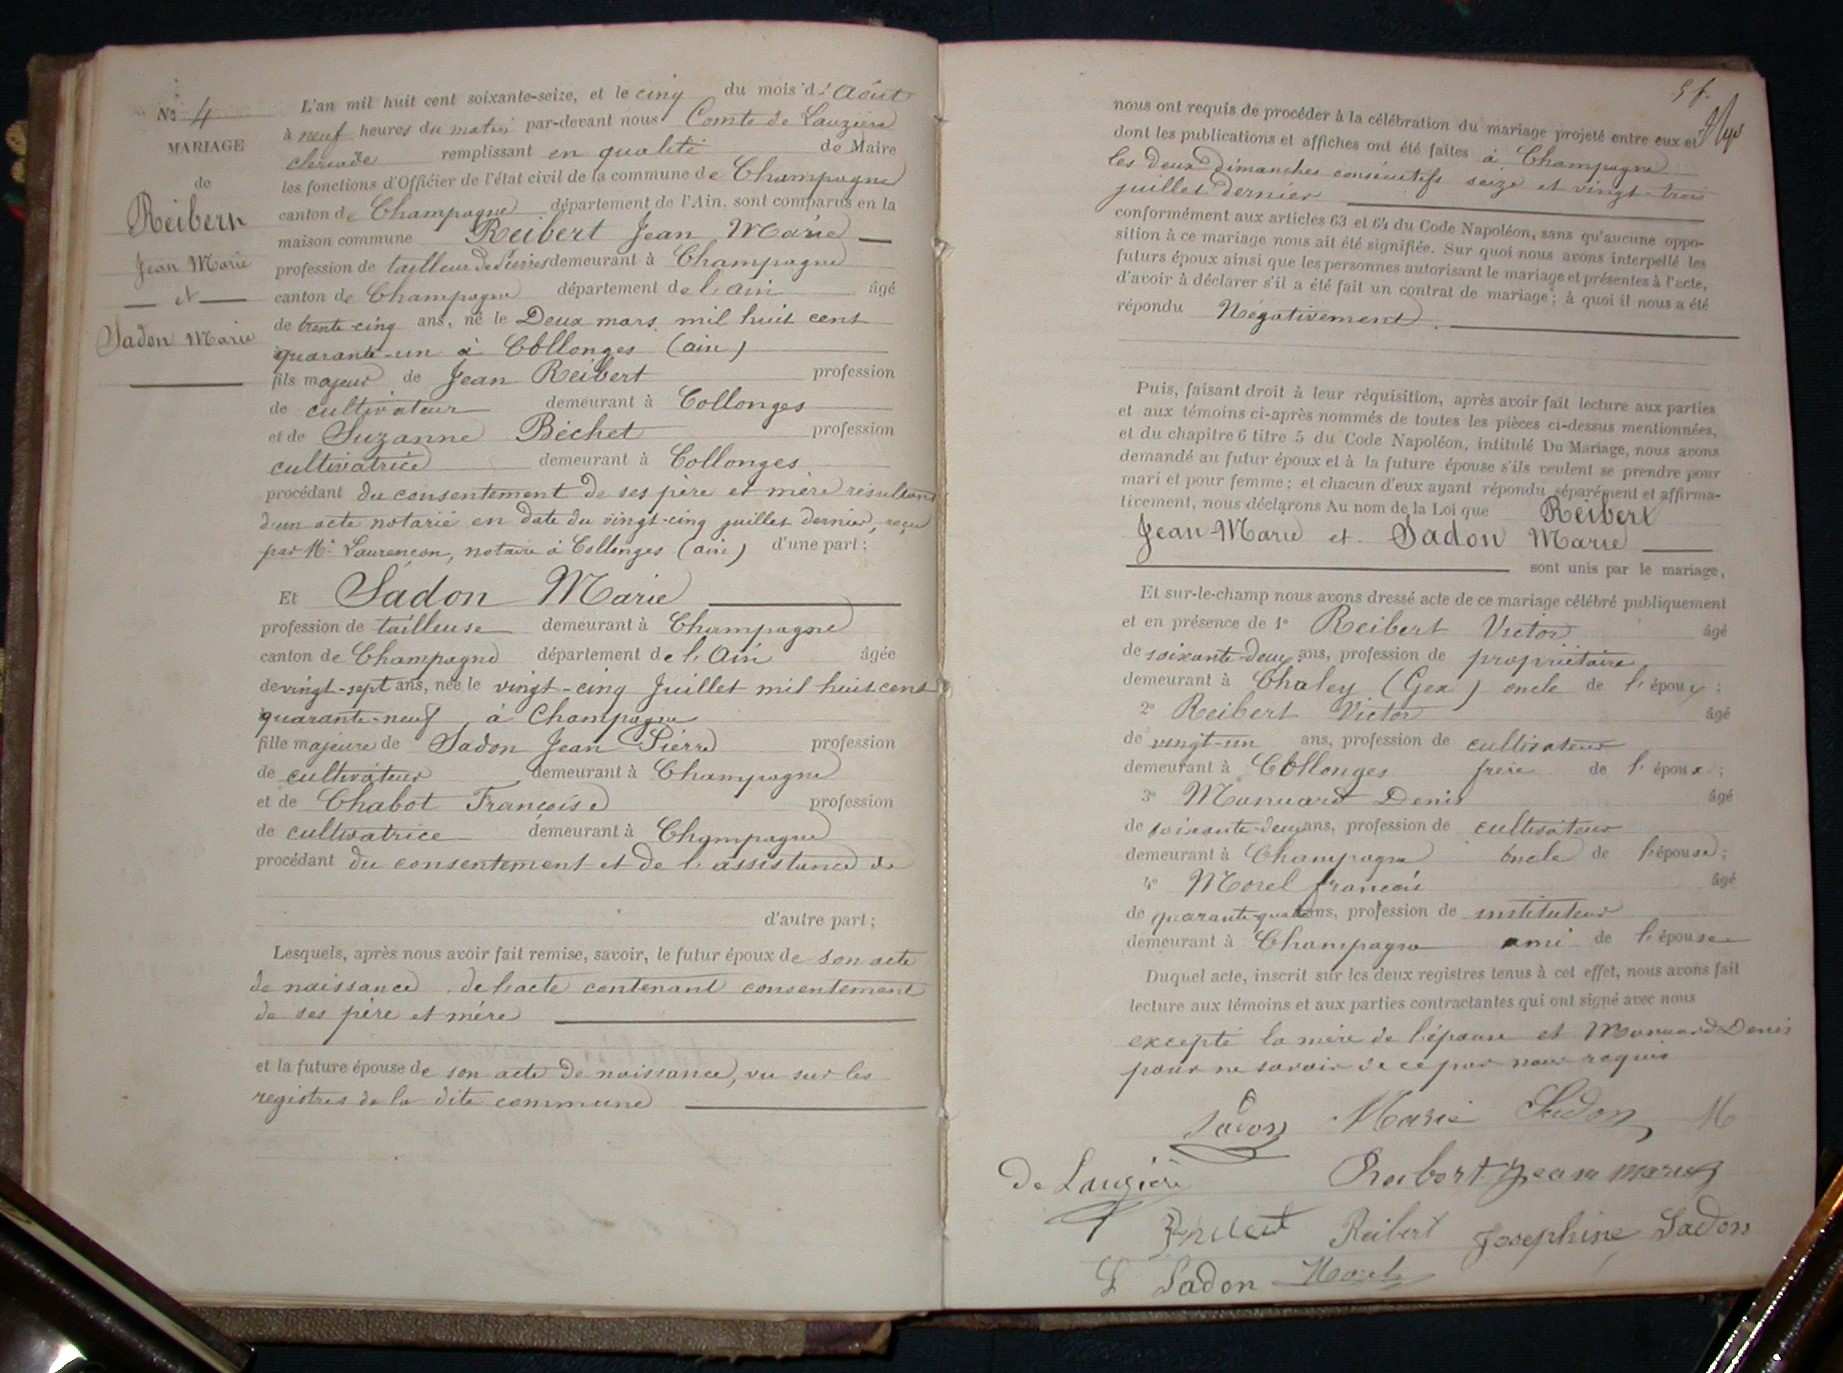 No 4
MARIAGE
de
Reibert
Jean Marie
et
Sadon Marie
L'an mil huit cent soixante-seize, et le cinq du mois d'Août
à neuf heures du matin par-devant nous Comte de Lauzière
remplissant en qualité de Maire
les fonctions d'Officier de l'état civil de la commune de Champagne
canton de Champagne département de l'Ain, sont comparus en la
maison commune Reibert Jean Marie
profession de tailleur de Pierres demeurant à Champagne
canton de Champagne département de l'ain âgé
de trente-cinq ans, né le Deux mars mil huit cent
quarante-un à Collonges (ain)
fils majeur de Jean Reibert profession
de cultivateur demeurant à Collonges
et de Suzanne Béchet profession
cultivatrice demeurant à Collonges
procédant du consentement de ses père et mère résultant
d'un acte notarié en date du vingt-cinq juillet dernier, reçu
par Me Laurençon, notaire à Collonges (ain) d'une part;
Et Sadon Marie
profession de tailleuse demeurant à Champagne
canton de Champagne département de l'Ain âgée
de vingt-sept ans, née le vingt-cinq Juillet mil huit cent
quarante-neuf, à Champagne
fille majeure de Sadon Jean Pierre profession
de cultivateur demeurant à Champagne
et de Chabot Françoise profession
de cultivatrice demeurant à Champagne
procédant du consentement et de l'assistance de
d'autre part;
Lesquels, après nous avoir fait remise, savoir, le futur époux de son acte
de naissance, de l'acte contenant consentement
de ses père et mère
et la future épouse de son acte de naissance, vu sur les
registres de la dite commune
nous ont requis de procéder à la célébration du mariage projeté entre eux et
dont les publications et affiches ont été faites à Champagne
les deux Dimanches consécutifs seize et vingt-trois
juillet dernier
conformément aux articles 63 et 64 du Code Napoléon, sans qu'aucune oppo-
sition à ce mariage nous ait été signifiée. Sur quoi nous avons interpellé les
futurs époux ainsi que les personnes autorisant le mariage et présentes à l'acte,
d'avoir à déclarer s'il a été fait un contrat de mariage; à quoi il nous a été
répondu Négativement.
Puis, faisant droit à leur réquisition, après avoir fait lecture aux parties
et aux témoins ci-après nommés de toutes les pièces ci-dessus mentionnées,
et du chapitre 6 titre 5 du Code Napoléon, intitulé Du Mariage, nous avons
demandé au futur époux et à la future épouse s'ils veulent se prendre pour
mari et pour femme; et chacun d'eux ayant répondu séparément et affirma-
tivement, nous déclarons Au nom de la Loi que Reibert
Jean-Marie et Sadon Marie
sont unis par le mariage,
Et sur-le-champ nous avons dressé acte de ce mariage célébré publiquement
et en présence de 1° Reibert Victor âgé
de soixante-deux ans, profession de propriétaire
demeurant à Chaley (Gex) oncle de l'époux;
2° Reibert Victor âgé
de vingt-un ans, profession de cultivateur
demeurant à Collonges frère de l'époux;
3° Manuard Denis âgé
de soixante-deux ans, profession de cultivateur
demeurant à Champagne oncle de l'épouse;
4° Morel françois âgé
de quarante-quatre ans, profession de instituteur
demeurant à Champagne ami de l'épouse
Duquel acte, inscrit sur les deux registres tenus à cet effet, nous avons fait
lecture aux témoins et aux parties contractantes qui ont signé avec nous
excepté la mère de l'épouse et Manuard Denis
pour ne savoir de ce par nous requis
Sadon Marie Sadon M
De Lauzière Reibert Jean marie
Reibert Josephine Sadon
Sadon Morel